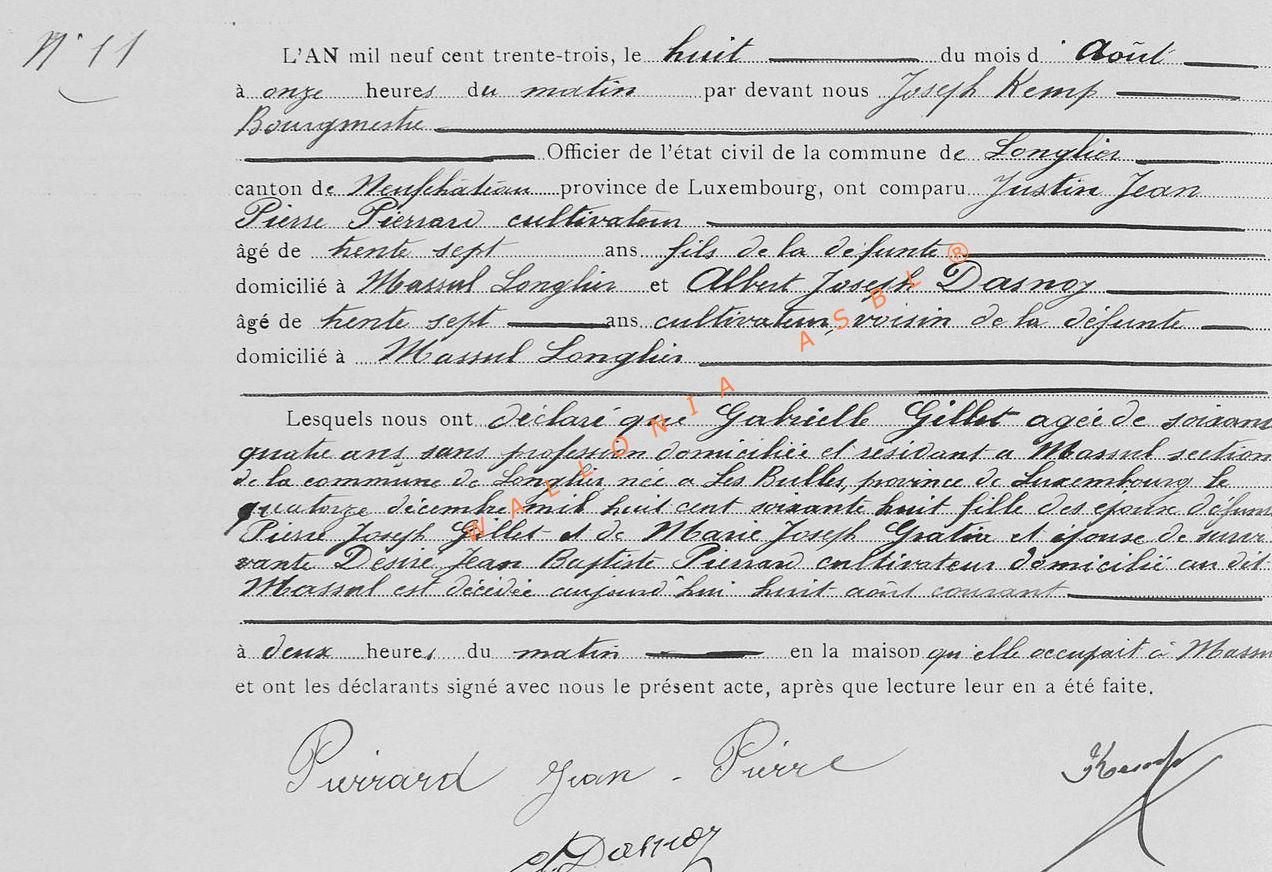 N° 11
L'AN mil neuf cent trente-trois, le huit du mois d' Août
à onze heures du matin par devant nous Joseph Kemp
Bourgmestre
Officier de l'état civil de la commune de Longlier
canton de Neufchâteau province de Luxembourg, ont comparu Justin Jean
Pierre Pierrard cultivateur
âgé de trente sept ans fils de la défunte
domicilié à Massul Longlier et Albert Joseph Dasnoy
âgé de trente sept ans cultivateur, voisin de la défunte
domicilié à Massul Longlier
Lesquels nous ont déclaré que Gabrielle Gillet agée de soixant
quatre ans, sans profession domiciliée et résidant a Massul section
de la commune de Longlier née a Les Bulles, province de Luxembourg le
quatorze décembre mil huit cent soixante huit fille des époux défun
Pierre Joseph Gillet et de Marie Joseph Gratia et épouse de survi
vante Désiré Jean Baptiste Pierrard cultivateur domicilié au dit
Massul est décédée aujourd'hui huit août courant
à deux heures du matin en la maison qu'elle occupait à Massu
et ont les déclarants signé avec nous le présent acte, après que lecture leur en a été faite.
Pierrard Jean - Pierre
Kemp
A. Dasnoy
WALLONIA ASBL ®